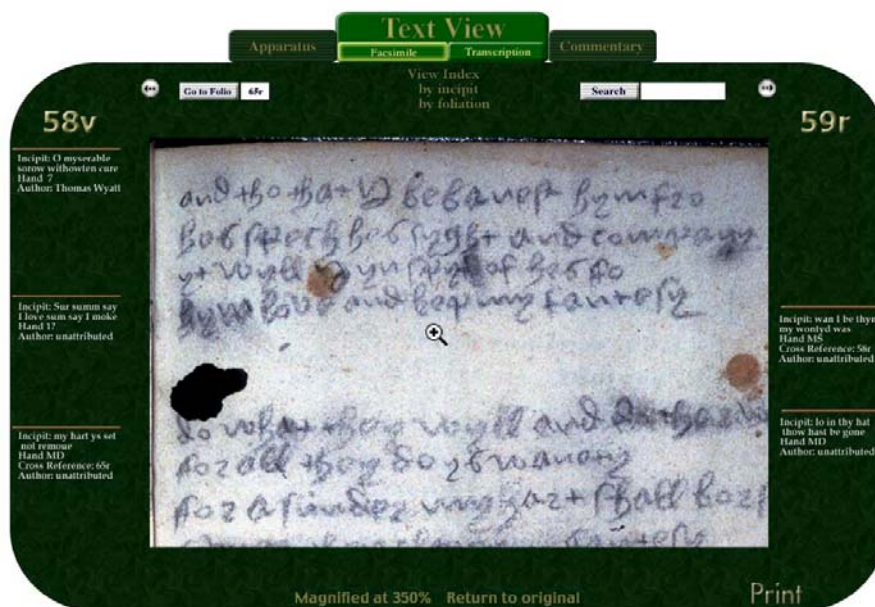 Text View
Apparatus
Facsimile
Transcription
Commentary
View Index
by incipit
by foliation
Go to Folio 65r
Search
58v
59r
Incipit: O myserable
sorow withowten cure
Hand 7
Author: Thomas Wyatt
Incipit: Sur summ say
I love sum say I moke
Hand 1?
Author: unattributed
Incipit: my hart ys set
not remoue
Hand MD
Cross Reference: 65r
Author: unattributed
and tho that I be banest hym fro
hes spech hes syght and company
yt wyll I yn spyt of hes fo
hym love and kep my fantesy
do what they wyll and do ther
for all they do ys wanety
for asunder my hart shall bors
fantesy
Incipit: wan I be thyn
my wontyd was
Hand MS
Cross Reference: 58r
Author: unattributed
Incipit: lo in thy hat
thow hast be gone
Hand MD
Author: unattributed
Magnified at 350% Return to original
Print